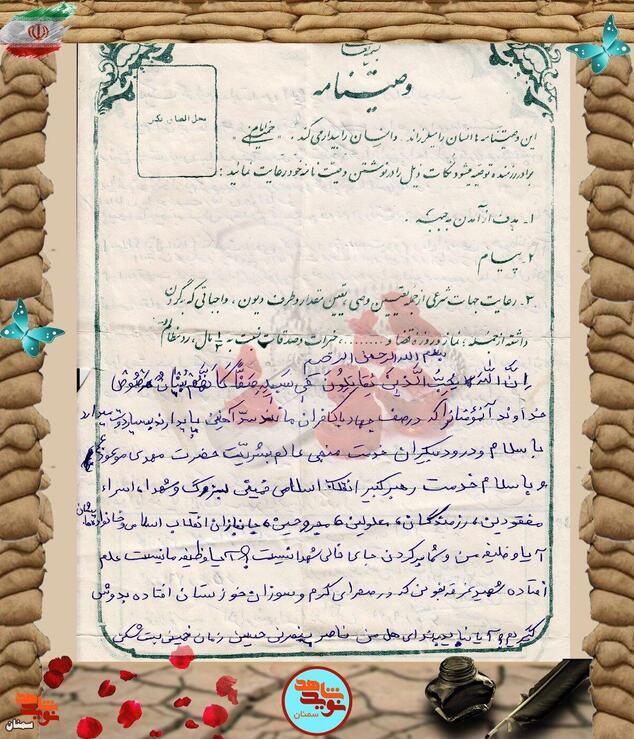 بسمه تعالی
وصیتنامه
محل الصاق عکس
این وصیتنامه ها انسان را میلرزاند و انسان را بیدار می کند. «امام خمینی»
برادر رزمنده توصیه میشود نکات ذیل را در نوشتن وصیت نامه خود رعایت نمائید:
۱- هدف از آمدن به جبهه.
۲- پیام
۳- رعایت جهات شرعی از جمله تعیین وصی، تعیین مقدار و طرف دیون، واجباتی که بگردن
داشته از جمله: نماز و روزه قضا و ........، خیرات و صدقات نسبت به ۱/۳ مال، رد مظالم
بسم الله الرحمن الرحیم
ان الله یحب الذین یقاتلون فی سبیله صفا کانهم بنیان مرصوص
خداوند آن مؤمنان را که در صف جهاد با کافران مانند سد آهنی پایدارند بسیار دوست میدارد
با سلام و درود بیکران خدمت منجی عالم بشریت حضرت مهدی موعود
و با سلام خدمت رهبر کبیر انقلاب اسلامی خمینی بزرگ و شهدا، اسراء
مفقودین، رزمندگان، معلولین، مجروحین، جانبازان انقلاب اسلامی و خانواده
آیا وظیفه من و شما پر کردن جای خالی شهدا نیست آیا وظیفه ما نیست علم
افتاده شهید غرقه بخون که در صحرای گرم و سوزان خوزستان افتاده بدوش
کشیم آیا نباید به ندای هل من ناصر ینصرنی حسین زمان خمینی بت شکن
نوید شاهد
سمنان
نوید شاهد
سمنان